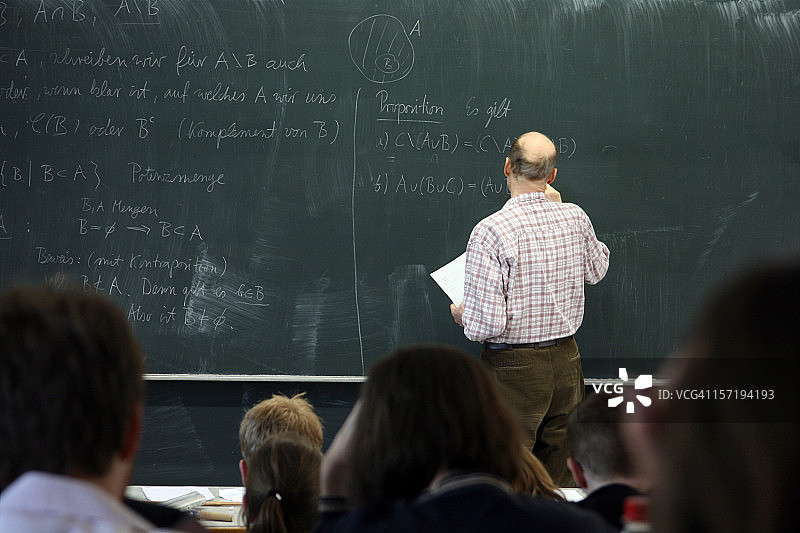 , A∩B, A\B
⊂ A, schreiben wir für A\B auch
oder, wenn klar ist, auf welches A wir uns
, C(B) oder Bᶜ (Komplement von B)
{B | B⊂A} Potenzmenge
A :
B, A Mengen
B = ø ⟹ B⊂A
Beweis: (mit Kontraposition)
B⊄A. Dann gilt es b∈B
Also ist B≠ø.
A
B
Proposition Es gilt
a) C\(A∪B) = (C\A B)
b) A∪(B∪C) = (A∪
VCG
ID: VCG41157194193